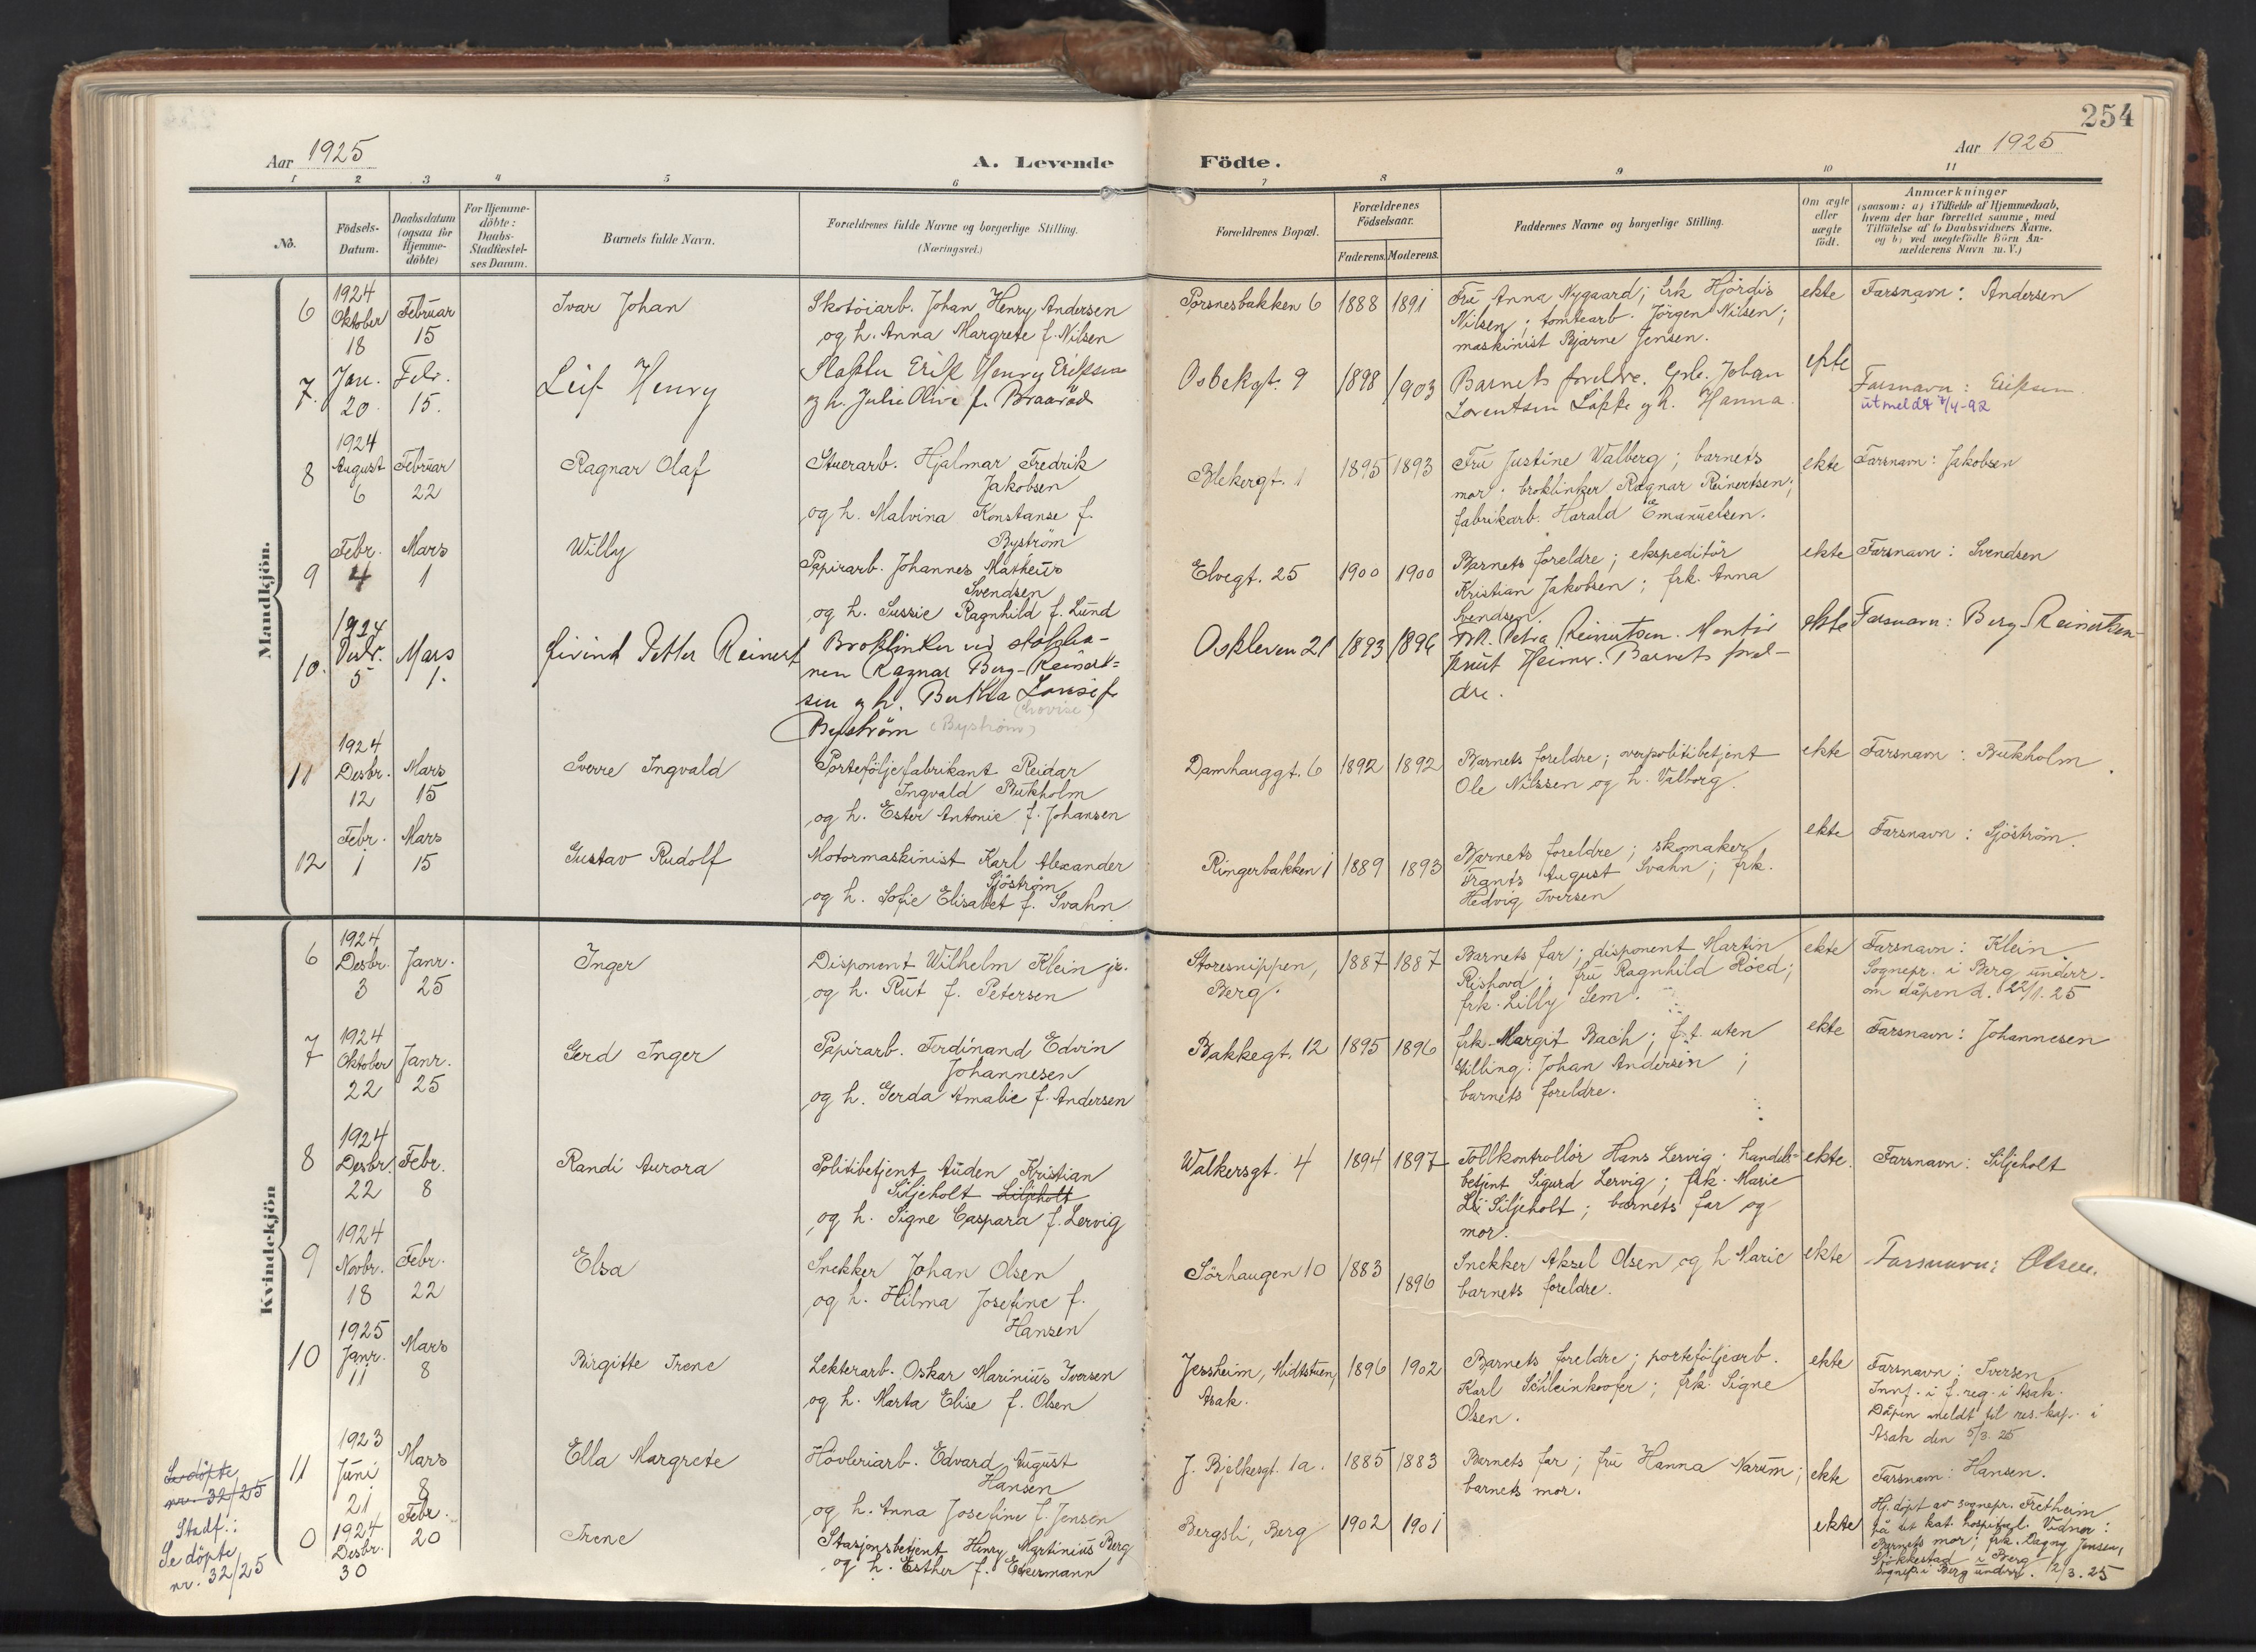 254
Aar 1925
A. Levende Födte.
Aar 1925
1 2 3 4 5 6 7 8 9 10 11
No.
Födsels-
Datum.
Daabsdatum
(ogsaa for
Hjemme-
döbte)
For Hjemme-
döbte:
Daabs-
Stadfæstel-
ses Datum.
Barnets fulde Navn.
Forældrenes fulde Navne og borgerlige Stilling.
(Næringsvei.)
Forældrenes Bopæl.
Forældrenes
Födselsaar.
Faderens. Moderens.
Faddernes Navne og borgerlige Stilling.
Om ægte
eller
uægte
födt.
Anmærkninger
(saasom: a) i Tilfælde af Hjemmedaab,
hvem der har forrettet samme, med
Tilföielse af to Daabsvidners Navne,
og b) ved uægtefödte Börn An-
melderens Navn m. V.)
Mandkjön.
6
1924
Oktober
18
Februar
15
Ivar Johan
Skotöiarb. Johan Henry Andersen
og h. Anna Margrete f. Nilsen
Porsnesbakken 6
1888
1891
Fru Anna Nygaard; frk Hjördis
Nilsen; tomtearb. Jörgen Nilsen;
maskinist Bjarne Jensen.
ekte
Farsnavn: Andersen
7.
Jan.
20
Febr.
15.
Leif Henry
Erik Henry Eriksen
og h. Julie Olive f. Braaröd
Osbekgt. 9
1898
1903
Barnets foreldre. Johan
Lorentsen og h. Hanna.
ekte
Farsnavn: Eriksen
utmeldt 7/4-92
8
1924
August
6
Februar
22
Ragnar Olaf
Stuerarb. Hjalmar Fredrik
Jakobsen
og h. Malvina Konstanse f.
Byström
Blekergt. 1
1895
1893
Fru Justine Walberg; barnets
mor; broklinker Ragnar Reinertsen;
fabrikarb. Harald Emanuelsen.
ekte
Farsnavn: Jakobsen
9
Febr.
4
Mars
1
Willy
Papirarb. Johannes Matheus
Svendsen
og h. Sussie Ragnhild f. Lund
Elvegt. 25
1900
1900
Barnets foreldre; ekspeditör
Kristian Jakobsen; frk. Anna
Svendsen.
ekte
Farsnavn: Svendsen
10.
1924
5
Mars
1.
Eivind Petter Reinert
Broklinker ved
nen Ragnar Berg-Reinert-
sen og h. Bertha Lovise f.
(Lovise)
Byström (Byström)
Oskleven 21
1893
1896
Frk. Petra Reinertsen. Montör
Knut Heimer. Barnets forel-
dre.
ekte
Farsnavn: Berg-Reinertsen
11
1924
Desbr.
12
Mars
15
Sverre Ingvald
Porteföljefabrikant Reidar
Ingvald Bukholm
og h. Ester Antonie f. Johansen
Damhauggt. 6
1892
1892
Barnets foreldre; overpolitibetjent
Ole Nilssen og h. Valborg.
ekte
Farsnavn: Bukholm.
12
Febr.
1
Mars
15
Gustav Rudolf
Motormaskinist Karl Alexander
Sjöström
og h. Sofie Elisabet f. Svahn
Ringerbakken 1
1889
1893
Barnets foreldre; skomaker
Frants August Svahn; frk.
Hedvig Iversen
ekte
Farsnavn: Sjöström.
Kvindekjön
6
1924
Desbr.
3
Janr.
25
Inger
Disponent Wilhelm Klein jr.
og h. Rut f. Petersen
Storesnippen,
Berg.
1887
1887
Barnets far; disponent Martin
Rishovd; fru Ragnhild Röed;
frk. Lilly Sem.
ekte
Farsnavn: Klein.
Sognepr. i Berg underr.
om dåpen d. 22/1. 25
7
1924
Oktober
22
Janr.
25
Gerd Inger
Papirarb. Ferdinand Edvin
Johannesen
og h. Gerda Amalie f. Andersen
Bakkegt. 12
1895
1896
frk. Margit Bach; f.t. uten
stilling: Johan Andersen;
barnets foreldre.
ekte
Farsnavn: Johannesen
8
1924
Desbr.
22
Febr.
8
Randi Aurora
Politibetjent Auden Kristian
Siljeholt Liljeholt
og h. Signe Caspara f. Lervig
Walkersgt. 4
1894
1897
Tollkontrollör Hans Lervig; handels-
betjent Sigurd Lervig; frk. Marie
Li Siljeholt; barnets far og
mor.
ekte.
Farsnavn: Siljeholt
9
1924
Novbr.
18
Febr.
22
Elsa
Snekker Johan Olsen
og h. Hilma Josefine f.
Hansen
Sörhaugen 10
1883
1896
Snekker Aksel Olsen og h Marie
barnets foreldre.
ekte
Farsnavn: Olsen.
10
1925
Janr.
11
Mars
8
Birgitte Irene
Lekterarb. Oskar Marinius Iversen
og h. Marta Elise f. Olsen
Jessheim, Midtstuen,
Asak.
1896
1902
Barnets foreldre; porteföljearb.
Karl Schleinkoofer; frk. Signe
Olsen.
ekte
Farsnavn: Iversen
Innf. i f. reg. i Asak.
Dåpen meldt til res.-kap. i
Asak den 5/3. 25
11
1923
Juni
21
Mars
8
Ella Margrete
Hövleriarb. Edvard August
Hansen
og h. Anna Josefine f. Jensen
J. Bjelkesgt. 1a.
1885
1883
Barnets far; fru Hanna Narum;
barnets mor.
ekte
Farsnavn: Hansen.
Se döpte
nr. 32/25
Stadf.:
Se döpte
nr. 32/25
0
1924
Desbr.
30
Febr.
20
Irene
Stasjonsbetjent Henry Martinius Berg
og h. Esther f. Eckermann
Bergsli, Berg
1902
1901
ekte
Hj. döpt av sognepr. Fretheim
på det kat. hospital. Vidner:
Barnets mor; frk. Dagny Jensen,
Sjökkestad i Berg
Sognepr. i Berg underr. 12/3. 25